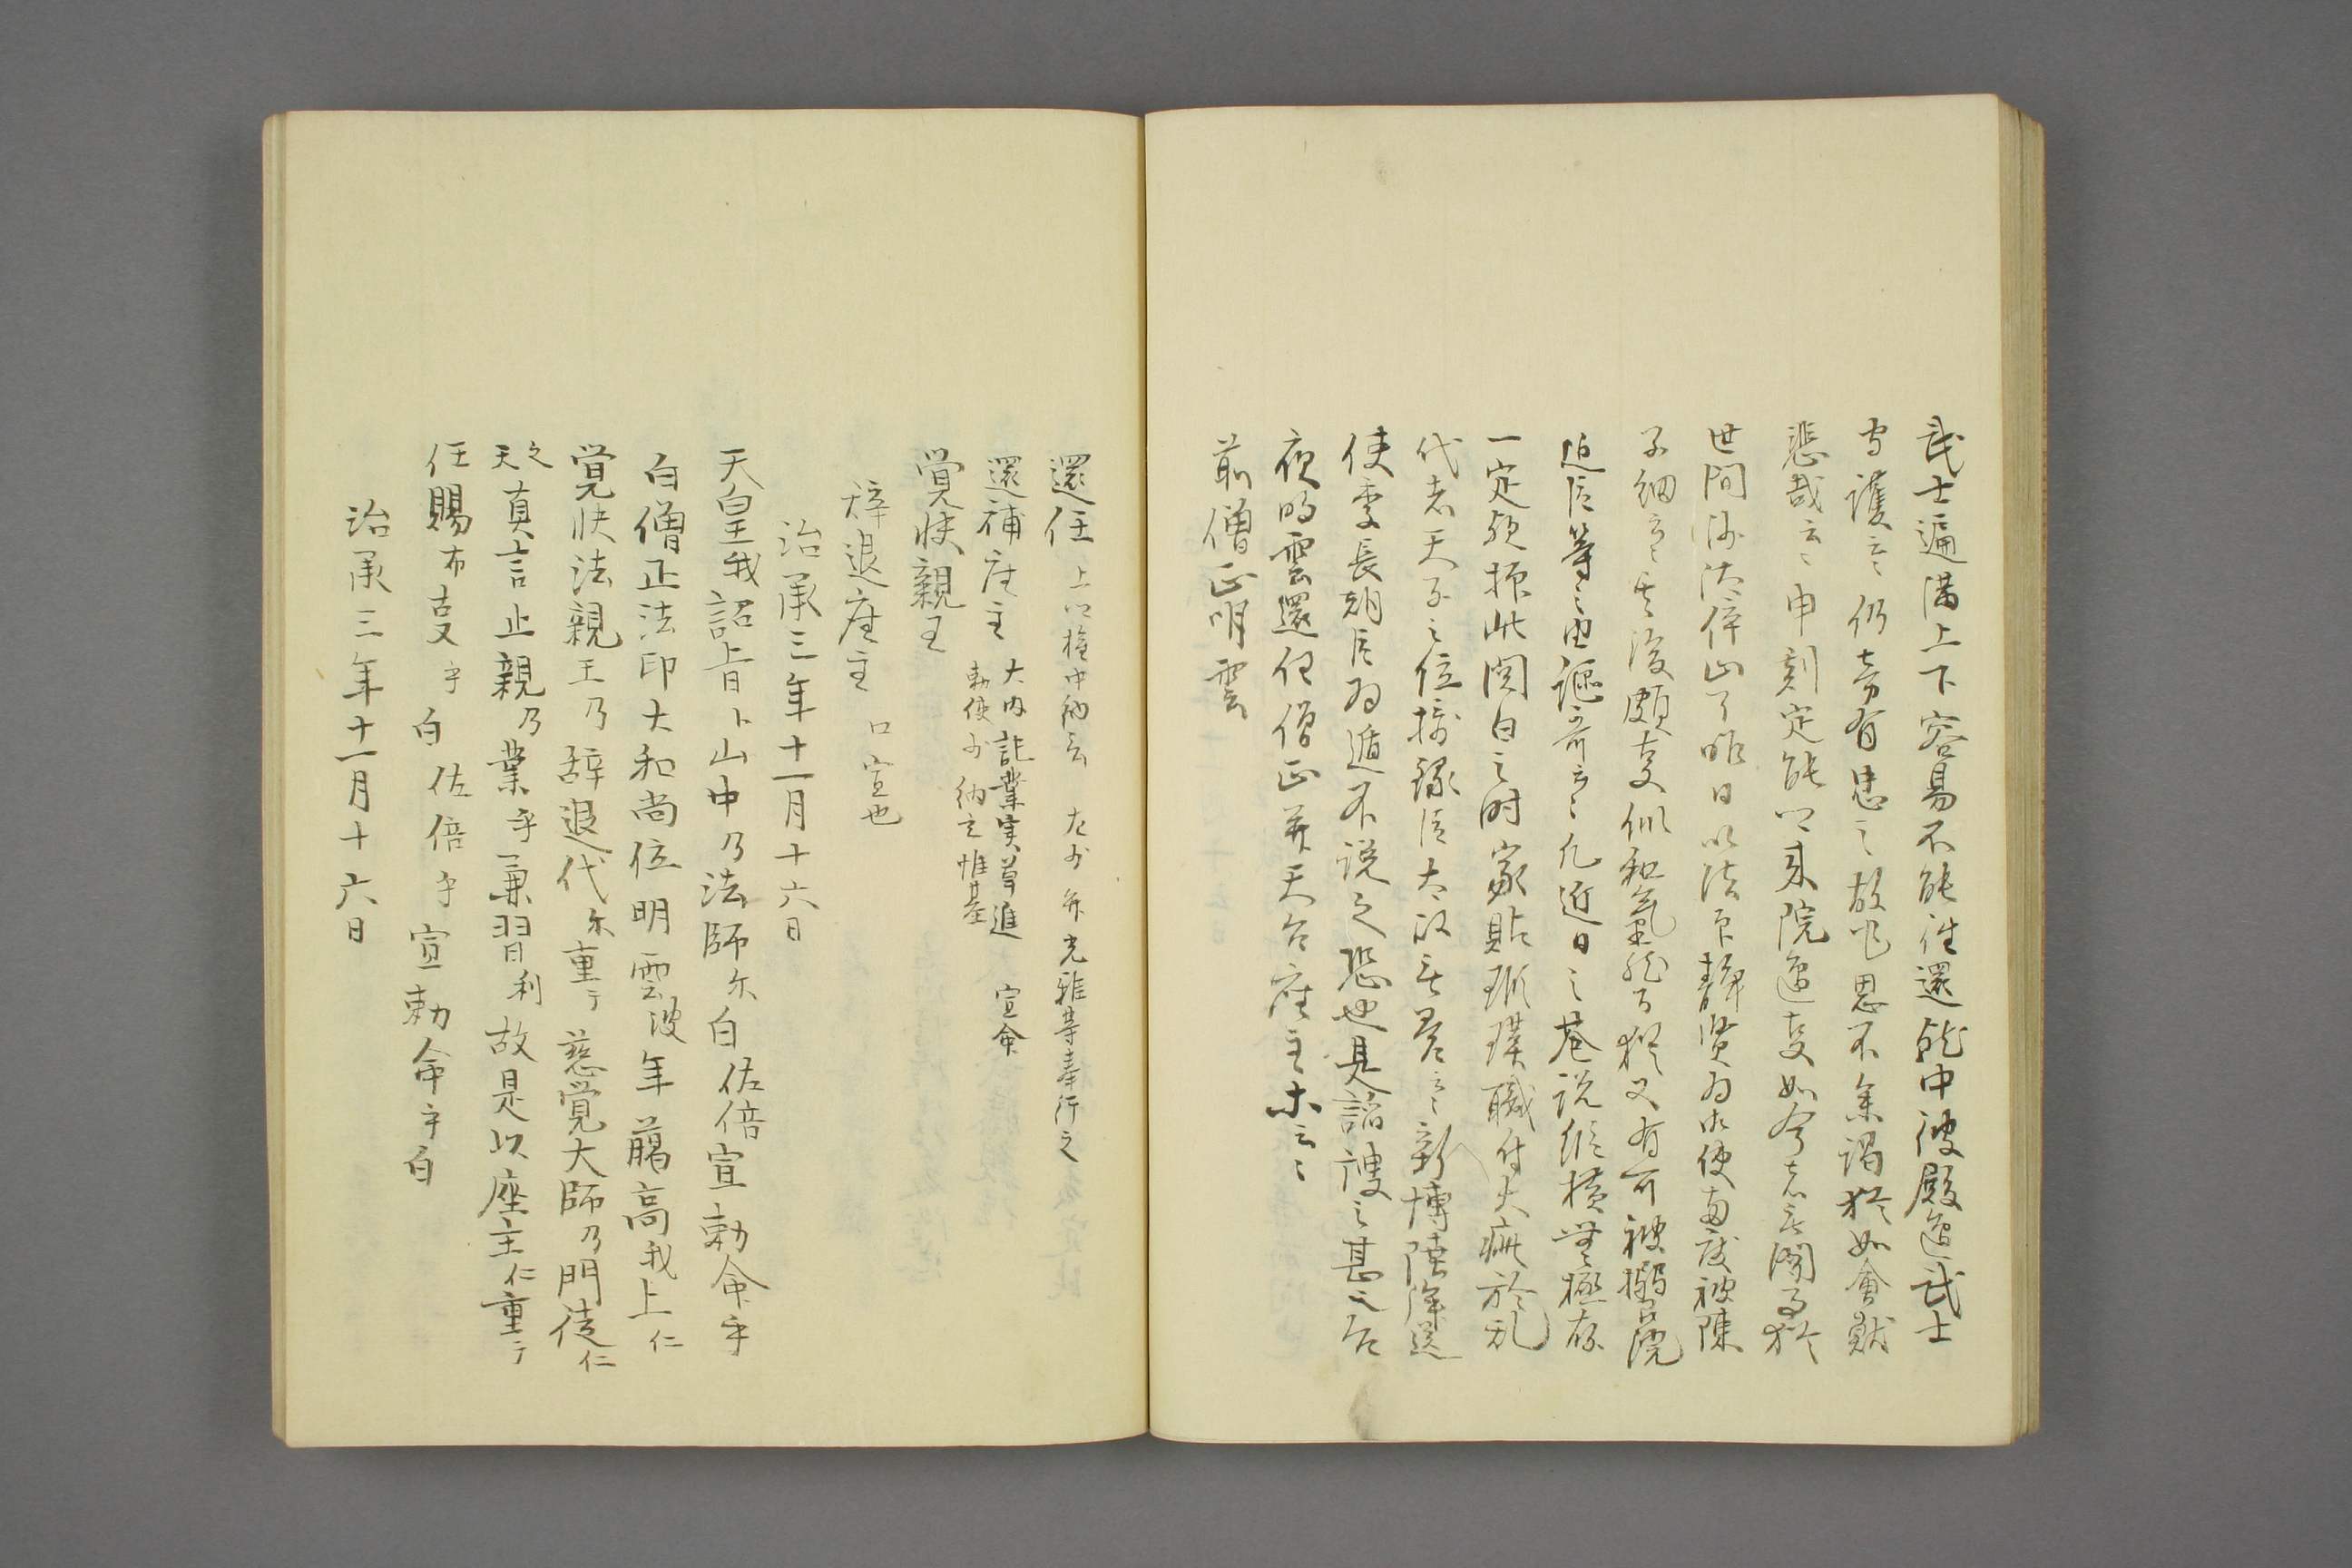 武士遍満上下容易不能往還就中彼殿邊武士
守護云々仍旁有思之故也思不参謁猶如會獻
悲哉云々申刻定能卿来院邊事如今者無聞事猶
世間沙汰停止了昨日以法印静賢為御使両度被陳
子細云々其後頗事似和氣然而猶又有可被搦召院
近臣等之由謳哥云々凡近日之巷説縦横無極存
一定難振此関白之時家貽瑕瑾職付大疵於乱
代者天子之位摂録臣太以無益云々新博陸浮送
使季長朝臣為遁不説之恐也是諂諛之甚也今
夜明雲還任僧正并天台座主末云々
前僧正明雲
還任 上卿権中納言 左少弁光雅等奉行之
還補座主 大内記業実草進 宣命
勅使少納言惟基
覚快親王
辞退座主 口宣也
治承三年十一月十六日
天皇我詔旨卜山中乃法師尓白佐倍宣勅命乎
白僧正法印大和尚位明雲波年﨟高我上仁
覚快法親王乃辞退代尓重テ慈覚大師乃門徒仁
天之真言止親乃業乎兼習利故是以座主仁重テ
任賜布事乎白佐倍乎宣勅命乎白
治承三年十一月十六日